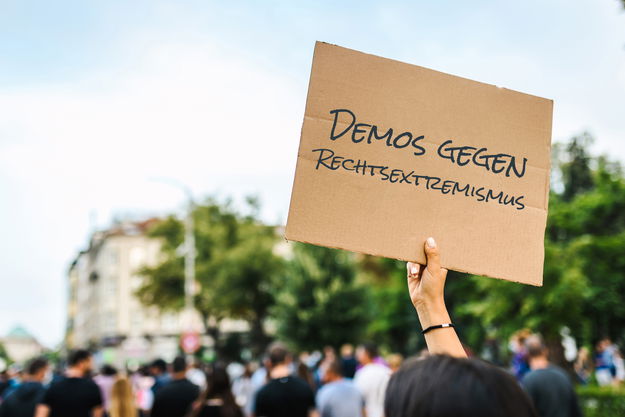 Demos gegen
Rechtsextremismus